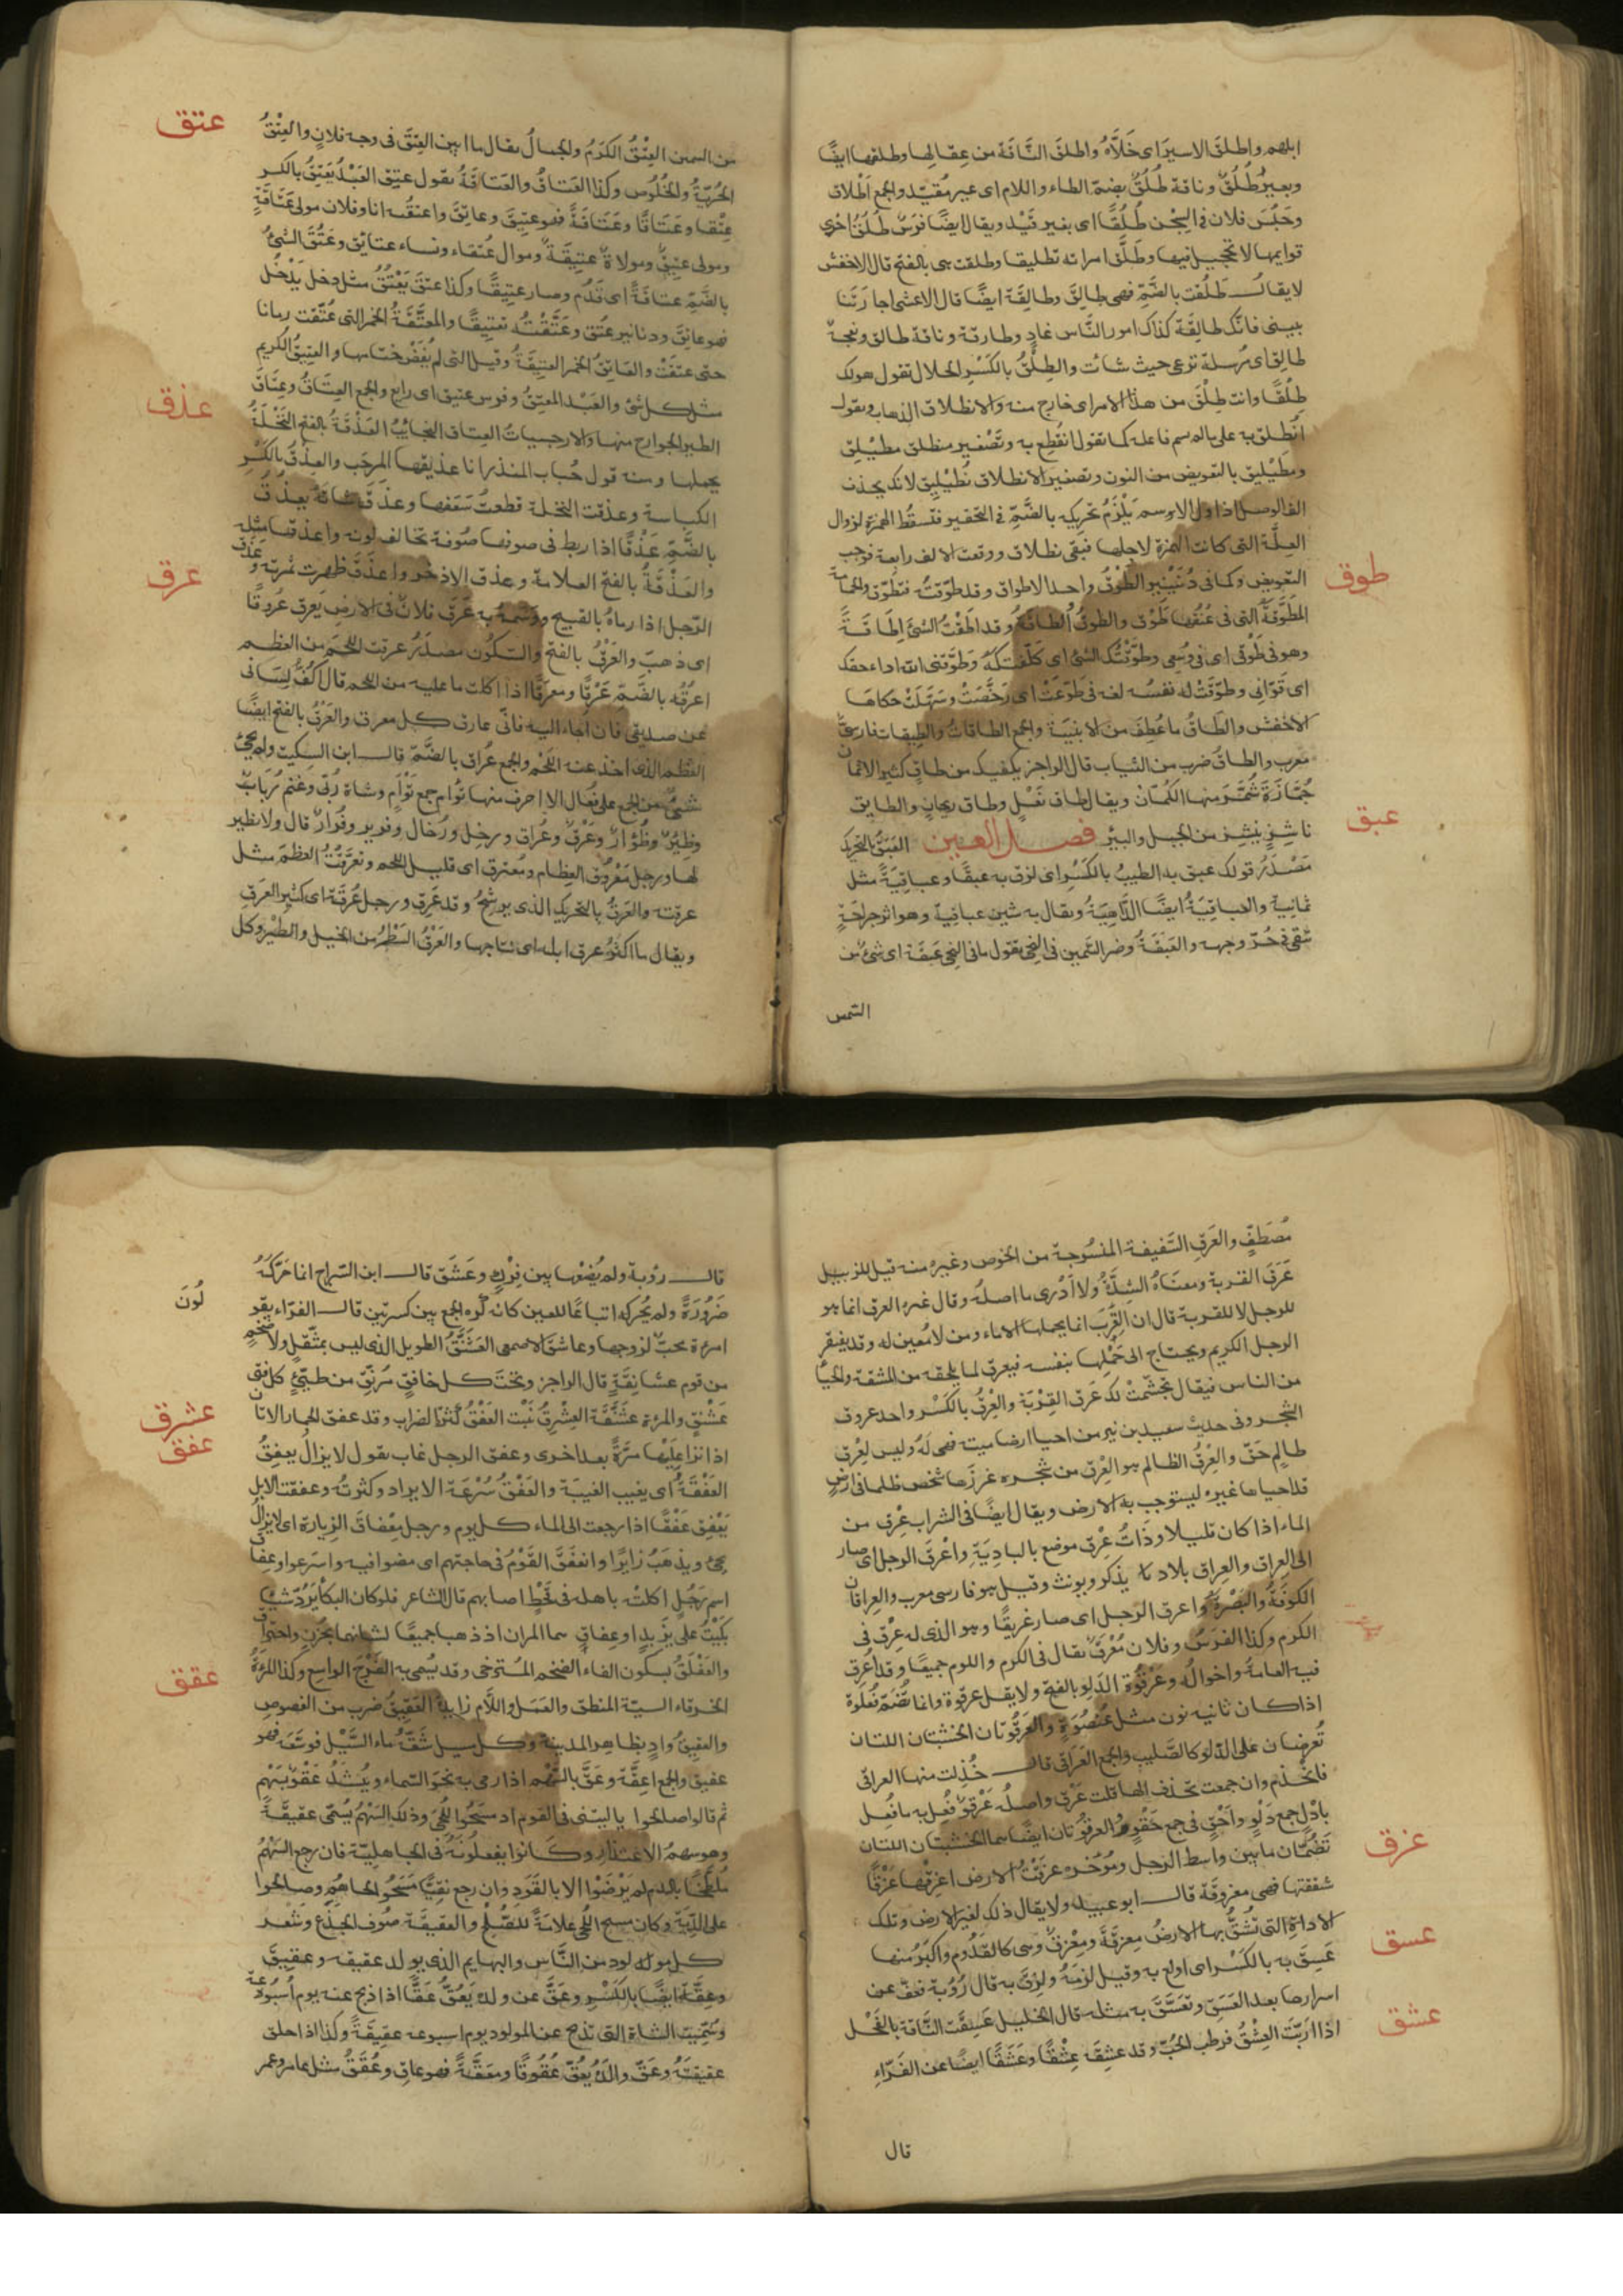 ابلهم واطلق الاسير اى خَلَّاهُ واطلق النَّاقَة من عِقالِها وطلقها ايضًا
وبعيرٌ طُلُقٌ وناقة طُلُقٌ بضمّ الطاء واللام اى غير مُقيّد والجمع اَطْلاق
وحُبِسَ فلان فى السِّجْن طُلُقًا اى بغير قَيْد ويقال ايضًا فرسٌ طُلُقُ اخرى
قوايمها لا تحجيل فيها وطَلَّق امراته تطليقا وطلقت هى بالفتح قال الاخفش
لا يقال طَلُقَت بالضّمّ فهى طالِق وطالِقَة ايضًا قال الاعشى اجارَتَنا
بينى فانّك طالِقَة كذاك امور النَّاس غادٍ وطارقة وناقة طالق ونعجة
طالق اى مُرسلة ترعى حيث شائت والطِلْقُ بالكَسْرِ الحلال تقول هولك
طِلْقًا وانت طِلْقٌ من هذا الامر اى خارج منه والانطلاق الذهاب ويقول
انْطُلِق به على مالم يسم فاعله كما تقول انقُطِع به وتَصْغير منطلق مطيْلِق
ومطَيْليق بالتعويض من النون وتصغير الانطلاق نُطَيْلِيق لانك تحذف
الف الوصل اذ اول الاسم يَلْزَمُ تحريكه بالضَّمِّ فى التحقير فتسقُط الهمزة لزوال
العِلَّة التى كانت الهمزة لاجلها فبقى نطلاق ووقعت الالف رابعة فوجب
التعويض وكما فى دُنَيْنِير الطَوْقُ واحد الاطواق وقد طوّقتُه فتطوّق والحمامة
المُطَوَّقَةُ التى فى عُنُقها طَوْق والطوقُ الطاقَةُ وقد اطقْتُ الشئ اِطَاقَةً
وهو فى طَوْقى اى فى وُسْعى وطوّقْتُك الشئ اى كلَّفْتُكَهُ وطوَّقَنى الله اداء حقك
اى قَوّانى وطوّقَتْ له نفسُه لغه فى طَوّعَتْ اى رَخَّصَتْ وسَهَّلَتْ حكاها
الاخفش والطاقُ ما عُطِفَ من الابنيَة والجمع الطاقات والطيقان فارسىٌّ
معرب والطاقُ ضرب من الثياب قال الراجز يكفيك من طاقٍ كثيرِ الاثمان
جُمَّازَة شُمِّرَ منها الكُمّان ويقال طاق نَعْلٍ وطاق ريحانٍ والطايق
ناشِزٍ ينشِز من الجبل والبير فصل العين العَبَقُ بالتحريك
مَصْدَرُ قولك عبق به الطيبُ بالكَسْرِ اى لزق به عبقًا وعباقيَةً مثل
ثمانية والعباقِيَةُ ايضًا الدَّاهِيَةُ ويقال به شين عباقيةٌ وهو اثر جراحَةٍ
تبقى فى حُرّ وجهه والعَبَقَةُ وضر السّمن فى النِحْى يقول مافى النِحْى عَبَقَة اى شئ من
السمن
طوق
عبق
من السمن العِتْقُ الكَرَمُ والجمالُ يقال ما ابين العِتْقَ فى وجه فلانٍ والعِتْقُ
الحُرّيَّةُ والخُلُوص وكذا العَتَاقُ والعَتَاقَةُ تقول عتِق العَبْدُ يَعْتِقُ بالكسر
عِتْقا وعَتَاقًا وعَتَاقَةً فهو عتِيق وعاتِق واعتقْتُه انا وفلان مولى عَتَاقَةٍ
ومولى عتِيق ومولاةٌ عتِيقَةٌ وموال عُتَقاء ونساء عتائق وعَتُقَ الشئُ
بالضّمّ عتاقَةً اى قَدُمَ وصار عتِيقًا وكذا عَتَقَ يَعْتُقُ مثل دخل يَدْخُل
فهو عاتِق ودنانير عُتُق وعَتَّقْتُه تعتِيقًا والمعتَّقَةُ الخمر التى عُتِّقَت زمانا
حتى عتقَتْ والعاتِق الخمر العتِيقَةُ وقيل التى لم يُفَضّ ختامها والعتِيقُ الكريم
مثل كل شئ والعَبْد المعتَقُ وفرس عتيق اى رايع والجمع العِتَاقُ وعِتَاقُ
الطير الجوارح منها والارحبيات العتاق النجايب العَذْقَةُ بالفتح النَّخْلَةُ
بحملها ومنه قول حُباب المنذر انا عذيقها المرجّب والعِذْقُ بالكَسْرِ
الكباسة وعذقت النخلة قطعتُ سَعَفها وعذَق شاتَهُ يعذُق
بالضّمّ عَذْقًا اذا ربط فى صوفها صُوفة تخالف لونه واعذقها مثله
والعَذْقَةُ بالفتح العلامة وعذق الاِذخر واعذق ظهرت ثمرته وعَذَق
الرّجل اذا رماه بالقبيح ووَسَمَهُ به عَرَق فلانٌ فى الارض يَعرِق عُروقًا
اى ذهب والعَرْقُ بالفتح والسّكُون مصدَرُ عرقت اللحمَ من العظم
اعرُقه بالضّمّ عَرْقًا ومعرَقًا اذا اكلت ما عليه من اللحم قال اكُفُّ لِسانى
عن صديقى فان اُجاء اليه فانّى عارق كل معرق والعَرْقُ بالفتح ايضًا
العَظْم الذى اخذ عنه اللَّحْم والجمع عُراق بالضَّمّ قال ابن السكيت ولم يجئ
شئٌ من الجمع على فُعَال الا احرف منها تُوام جمع توْأم وشاة رُبّى وغنم رُبابٌ
وظِئْرٌ وظُؤارٌ وعَرْقٌ وعُراق ورخِل ورُخال وفرير وفُرارٌ قال ولا نظير
لها ورجل مَعْرُوق العِظام ومُعترق اى قليل اللحم وتعرَّقْتُ العظمَ مثل
عرقته والعَرَقُ بالتحريك الذى يرشح وقد عَرِق ورجل عُرَقَة اى كثير العَرق
ويقال ما اكثر عرق ابله اى نتاجها والعَرَقُ السَطْرُ من الخيل والطيْر وكل
عتق
عذق
عرق
مُصْطَفٍّ والعَرق السَّفيفة المنسُوجة من الخوص وغيره منه قيل للزبيل
عَرَق القربة ومعنَاهُ الشِدَّةُ ولا اَدْرى ما اصلُه وقال غيره العرق انما هو
للرجل لا للقربة قال ان القِرَب انما يحملها الاماء ومن لا مُعين له وقد يفتقر
الرجل الكريم ويحتاج الى حَمْلِها بنفسه فيعرق لما يلحقه من المشقة والحيا
من الناس فيقال تجشّمتُ لك عَرَق القِرْبَة والعِرْقُ بالكَسْر واحد عروق
الشجر وفى حديث سعيد بن زيد من احيا ارضا ميتة فهى لَهُ وليس لعِرْق
ظالِم حَقّ والعِرْقُ الظالم هو العِرْق من شجره غرزها شخص ظلما فى ارضٍ
قد احياها غيره ليستوجب به الارض ويقال ايضًا فى الشراب عِرْق من
الماء اذا كان قليلا وذَاتُ عِرْق موضع بالبادِيَةِ واعْرَقَ الرجل اى صار
الى العراق والعِراق بلاد يذكر ويونث وقيل هو فارسى معرب والعِراقان
الكوفَةُ والبَصْرةُ واعرق الرّجل اى صار عَرِيقًا وهو الذى له عِرْق فى
الكرم وكذا الفَرَسُ وفلان مُعْرَق يقال فى الكرم واللوم جميعًا وقد اَعْرَق
فيه اعمامه واخوالُه وعَرْقُوَةُ الدَلو بالفتح ولا يقل عرقوة وانما تُضَمّ فُعْلُوة
اذا كان ثانيه نون مثل عُنْصُوَةٍ والعَرْقُوتان الخشبتان اللتان
تُعرضان على الدّلو كالصَّليب والجمع العَراقى قال خُذِلت منها العراقى
فانخذم وان جمعت بحذف الهاء قلت عَرْقٍ واصلُه عَرْقُوٌ فُعِلَ به ما فُعِل
بادْلٍ جمع دَلْوٍ واَحْقٍ فى جمع حَقْوٍ والعرقُوتان ايضًا هما الخشبتان اللتان
تضُمّان ما بين واسط الرحل ومُؤخَره عزَقْتُ الارض اعزِقُها عَزْقًا
شققتها فهى معزوقَة قال ابو عبيد ولا يقال ذلك لغير الارض وتلك
الاداة التى تُشَقّ بها الارضُ مِعزَقَة ومِعْزَق وهى كالقَدُّوم واكبر منها
عَسِقَ به بالكَسْر اى اولع به وقيل لزمَهُ ولزق به قال رُؤبة فعَفّ عن
اسرارها بعد العَسَق وتَعَسَّق به مثله قال الخليل عَسِقَت النَّاقة بالفَحْل
اذا اَرَبَّت العِشْقُ فرط الحُبّ وقد عشِقَ عِشْقًا وعَشَقًا ايضًا عن الفَرّاءِ
قال
عزق
عسق
عشق
قال رؤبة ولم يُضِعْها بين فِرْكٍ وعَشَق قال ابن السّراج انما حَرّكَهُ
ضَرُورَةً ولم يُحركه اتباعًا للعين كانه كَرِه الجمع بين كسرتين قال الفرّاء يقو
لُونَ
امرءة محبّ لزوجها وعاشق الاصمعى العَشَنَّقُ الطويل الذى ليس بمثقل ولا ضَخْمٍ
من قوم عشانِقَةٍ قال الراجز وتحتَ كل خافِقٍ مُرَنِّقٍ من طيّئٍ كل فتى
عَشَنَّقٍ والمرءة عشَنَّقَة العِشْرِقُ نَبْت العَفْقُ كثرة الضراب وقد عفق الحمار الاتان
اذا نزا عليها مَرَّةً بعد اخرى وعفق الرجل غاب تقول لا يزال يعفِقُ
العَفْقَةَ اى يغيب الغيبَة والعَفْقُ سُرْعَة الايراد وكثرتُه وعفقت الابل
يَعْفِق عَفْقًا اذا رجعت الى الماء كل يوم ورجل مِعْفاق الزيارة اى لا يزال
يجئ ويذهَبُ زايرًا وانعفق القَوْمُ فى حاجتهم اى مضوا فيه واسرعوا وعِفاق
اسم رَجُلٍ اكلتْه باهله فى قَحْطٍ اصابهم قال الشاعر فلو كان البكاء يَرُدّ شيئا
بكيْتُ على يزيدٍ او عفاقٍ هما المران اذ ذهبا جميعًا لشانهما بحُزْنٍ واحتراق
والعَفْلَقُ بسكون الفاء الضخم المُسْترخى وقد يُسمى به الفَرْج الواسع وكذا المرءةُ
الخرقاء السيئة المنطق والعَمَل واللّام زايدة العَقِيقُ ضرب من الفصوص
والعقيقُ وادٍ بظاهر المدينة وكل مسيل شَقّه ماء السَّيْل فوسّعه فهو
عقيق والجمع اعِقَّة وعَقَّ بالسَّهْم اذا رمى به نحوَ السّماء ويُنشَدُ عَقّوا بسَهْمٍ
ثم قالوا صالحوا ياليتنى فى القوم اذ مسَحُوا اللّحى وذلك السَّهْمُ يُسَمّى عقيقَةً
وهو سهمُ الاعتذار وكانوا يفعلونَهُ فى الجاهلِيّة فان رجع السَّهْمُ
مُلَطَّخًا بالدم لم يَرْضَوْا الا بالقَوَدِ وان رجع نقيًّا مَسَحُوا لِحاهُم وصالحوا
على الدِّيَة وكان مسح اللّحى علامَةً للصُّلْحِ والعقيقَة صُوف الجَذَع وشَعر
كل مولود من النَّاس والبهايم الذى يولد عقيقه وعقيق
وعِقَّة ايضًا بالكَسْرِ وعَقَّ عن ولده يَعُقّ عَقًّا اذا ذبح عنه يوم اُسْبُوعِهِ
وسُمِّيَت الشاة التى تذبح عن المولود يوم اسبوعه عقيقَةً وكذا اذا حلق
عقيقَتَهُ وعَقّ والدَهُ يَعُقّ عُقُوقًا ومَعَقَّةً فهو عاق وعُقَقٌ مثل عامر وعمر
عشرق
عفق
عقق